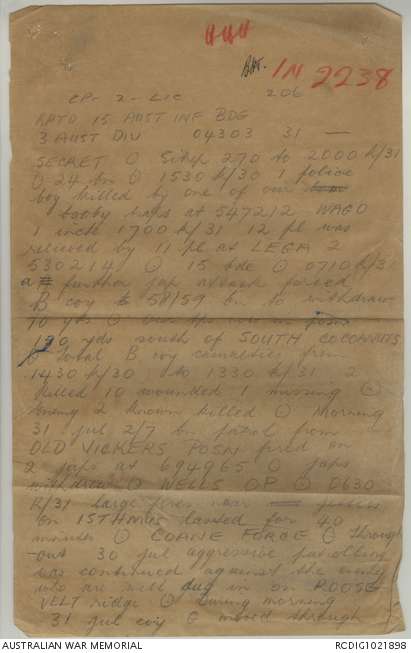 IN 2238
206
CP- 2- LIC
RPTD 15 AUST INF BDG
3 AUST DIV 04303 31 —
SECRET O Sitrep 270 to 2000 K/31
O 24 bn O 1530 K/30 1 police
boy killed by one of our
booby traps at 547212 WAGO
1 inch 1700 K/31 12 pl was
relieved by 11 pl at LEGA 2
530214 O 15 bde O 0710 K/31
a further jap attack forced
B coy 58/59 bn to withdraw
10 yds O
100 yds south of SOUTH COCONUTS
O total B coy casualties from
1430 K/30 to 1330 K/31 2
killed 10 wounded 1 missing O
Enemy 2 known killed O Morning
31 jul 2/7 bn patrol from
OLD VICKERS POSN fired on
2 japs at 694965 O japs
withdrew O WELLS OP O 0630
K/31 large fires near
on ISTHMUS lasted for 40
minutes O COANE FORCE O Through
-out 30 jul aggressive patrolling
was continued against the enemy
who are well dug in on ROOSE-
VELT ridge O During morning
31 jul coy G moved through
AUSTRALIAN WAR MEMORIAL
RCDIG1021898